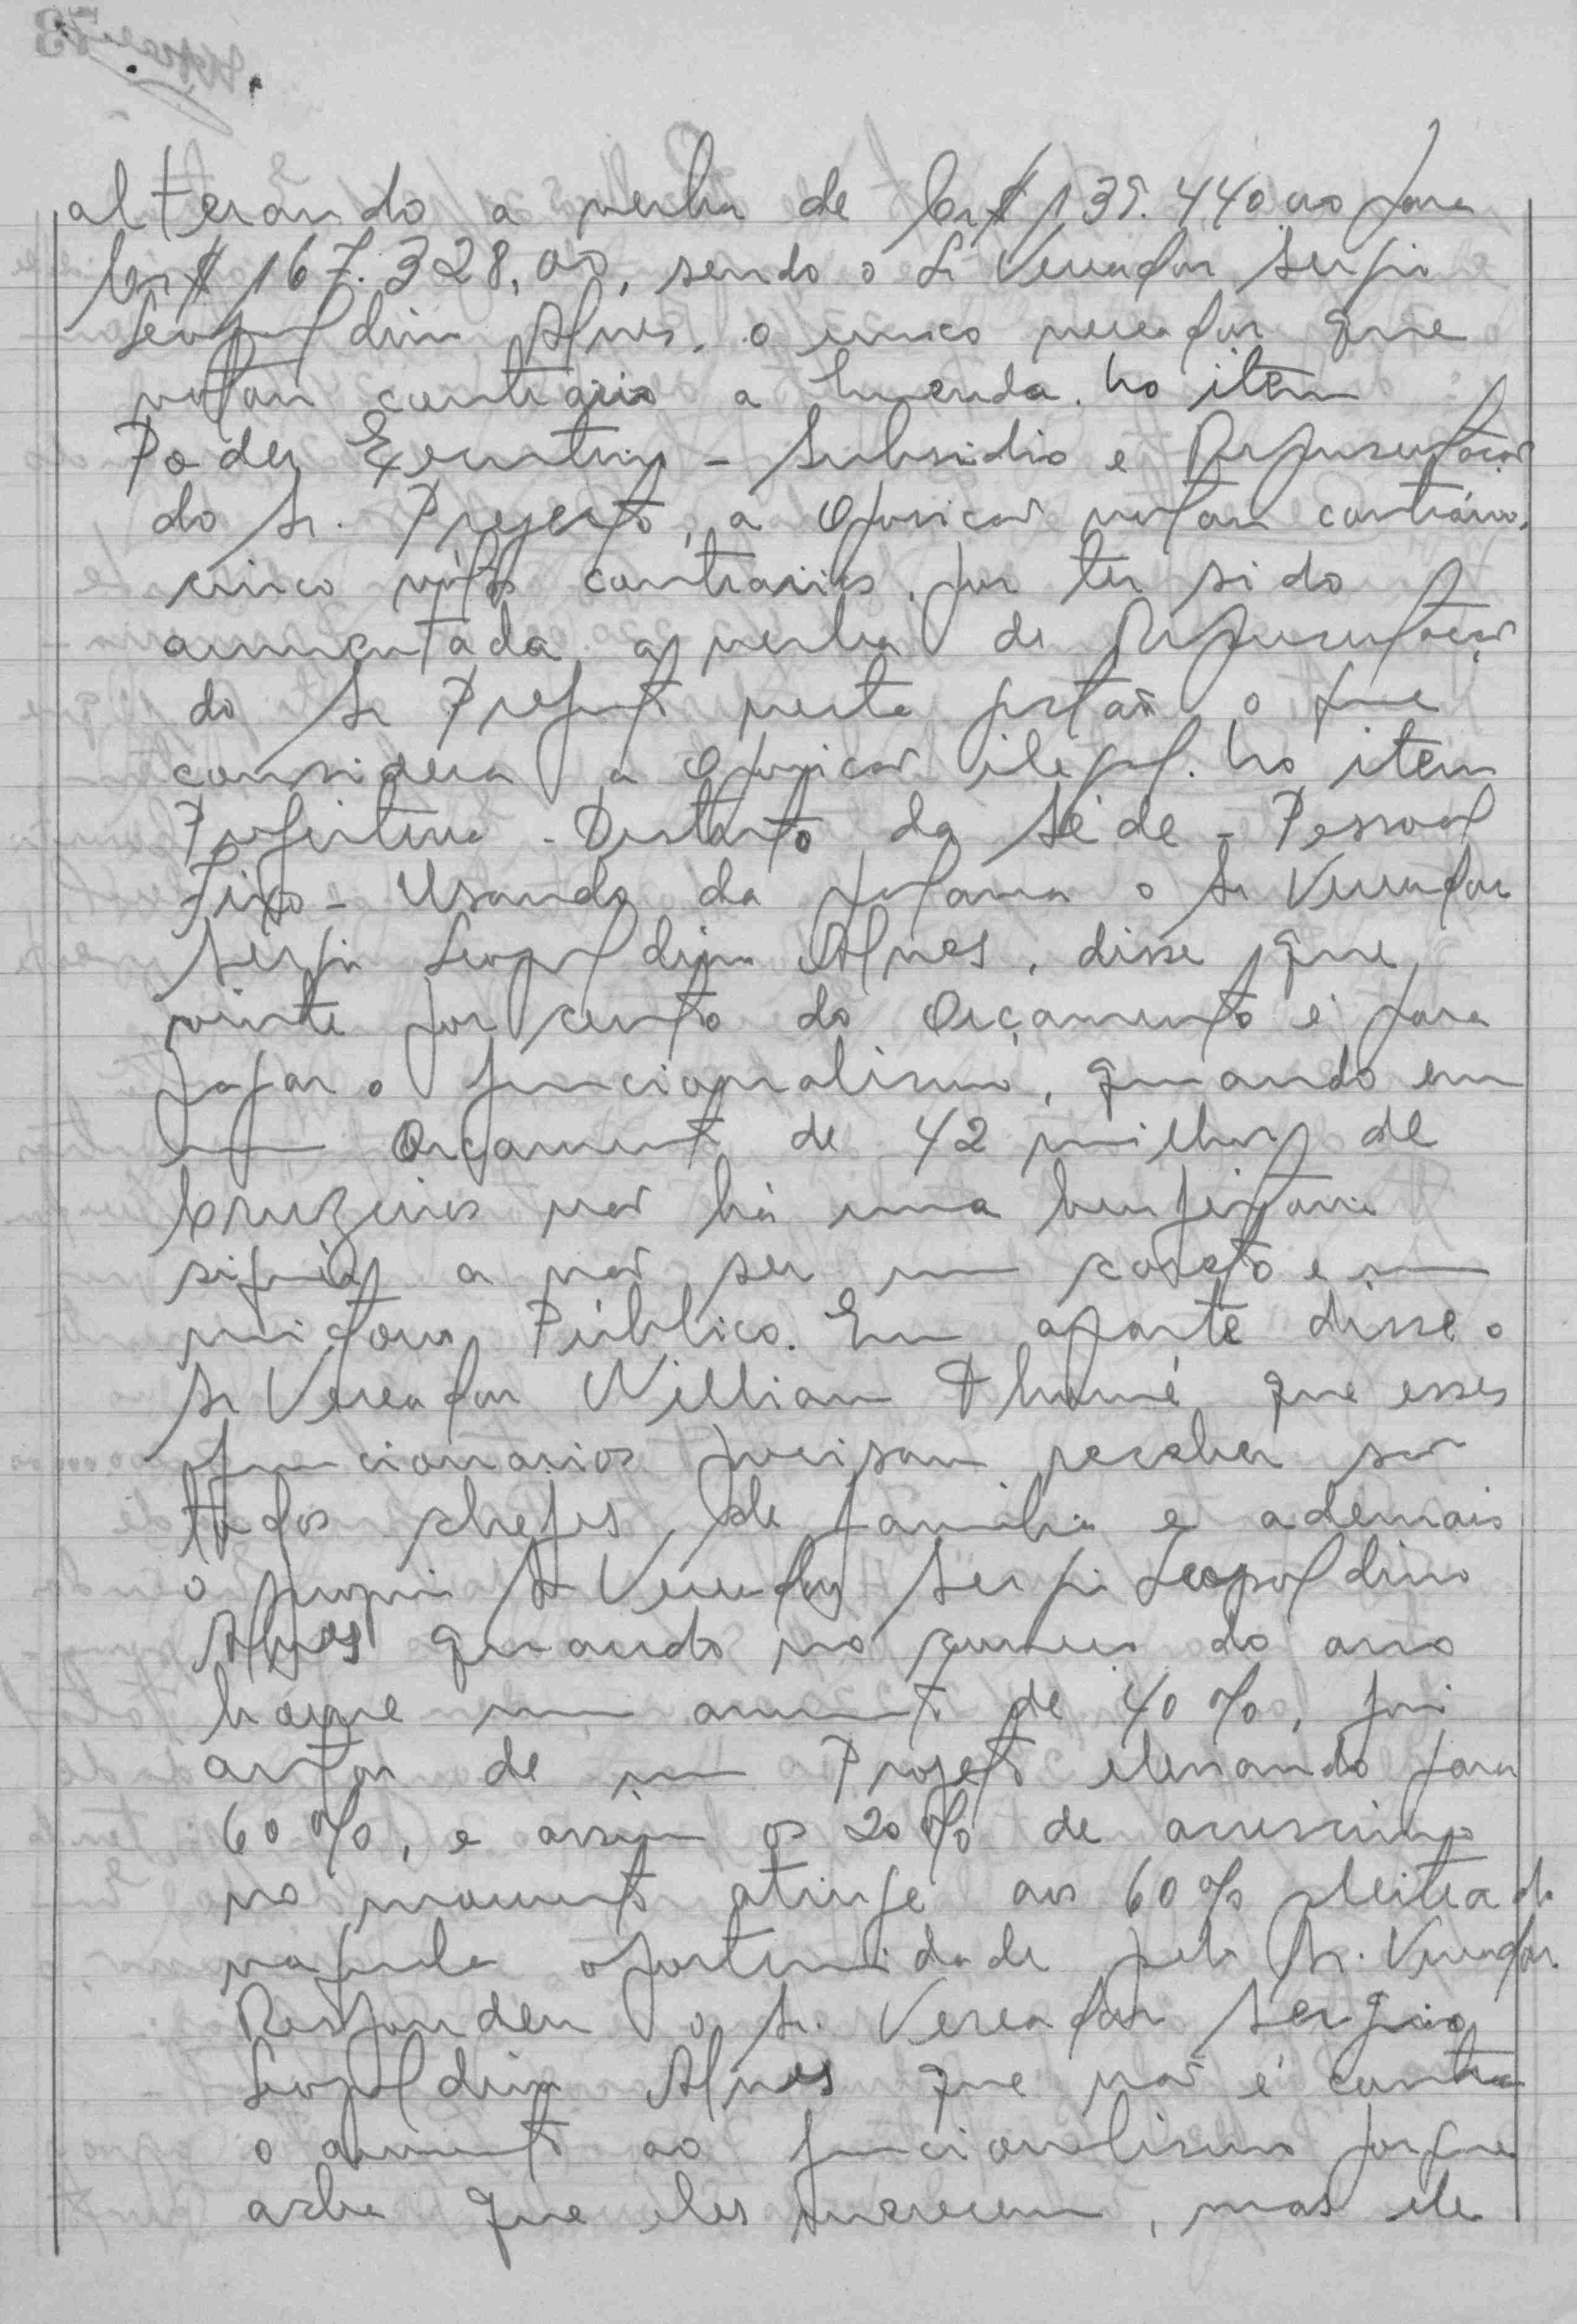 alterando a verba de Cr$ 139.440,00 para
Cr$ 167.328,00, sendo o Sr Vereador Sergio
Leopoldino Alves, o unico vereador que
votou contrario a Emenda. No item
Poder Executivo - Subsidio e Representação
do Sr. Prefeito, a Oposicão votou contrário,
cinco vótos contrarios, por ter sido
aumentada a verba de Representação
do Sr Prefeito nesta gestão o que
considera a Oposicão ilegal. No item
Prefeitura - Distrito da Séde - Pessoal
Fixo - Usando da palavra o Sr Vereador
Sergio Leopoldino Alves, disse que
vinte por cento do Orçamento é para
pagar o funcionalismo, quando em
um Orçamento de 42 milhões de
Cruzeiros não há uma benfeitoria
siquér a não ser um corêto e um
mictorio Público. Em aparte disse o
Sr Vereador William Thomé que esses
funcionarios precisam receber são
todos chefes de familia e ademais
o proprio Sr Vereador Sergio Leopoldino
Alves quando no começo do ano
houve um aumento de 40%, foi
autor de um Projeto elevando para
60%, e assim os 20% de acrescimo
no momento atinge aos 60% pleiteado
naquela oportunidade pelo Sr. Vereador.
Respondeu o Sr. Vereador Sergio
Leopoldino Alves que não é contra
o aumento ao funcionalismo porque
acha que eles merecem, mas ele